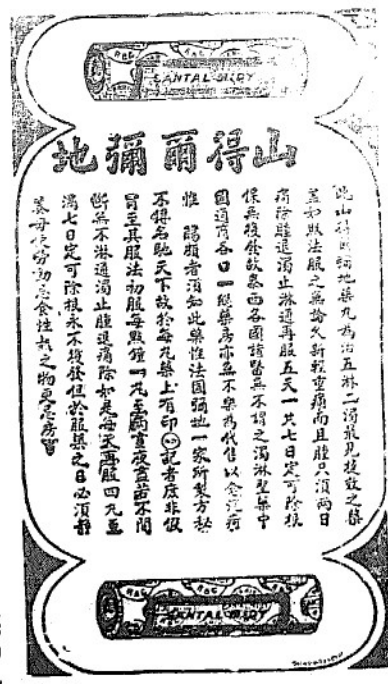 SANTAL MIDY
山得爾彌地
此山得爾彌地藥丸為治五淋二濁最見捷效之藥
蓋如以法服之無論久新輕重痛而且腫只須兩日
痛除腫退濁止淋通再服五天一共七日定可除根
保無後發故泰西各國諸醫無不謂之濁淋聖藥中
國通商各口一經藥房亦無不樂為代售以沉疴
性 賜顧者須知此藥性法國彌地一家所製方秘
不傳名馳天下故於每丸藥上有印記者庶非假
冒至其服法初服每點鐘一丸至兩晝夜蓋若不間
斷無不淋通濁止腫退痛除如是每天再服四丸至
濁七日定可除根永不復發但於服藥之日必須靜
養毋使勞動忌食性熱之物更忌房
SANTAL MIDY